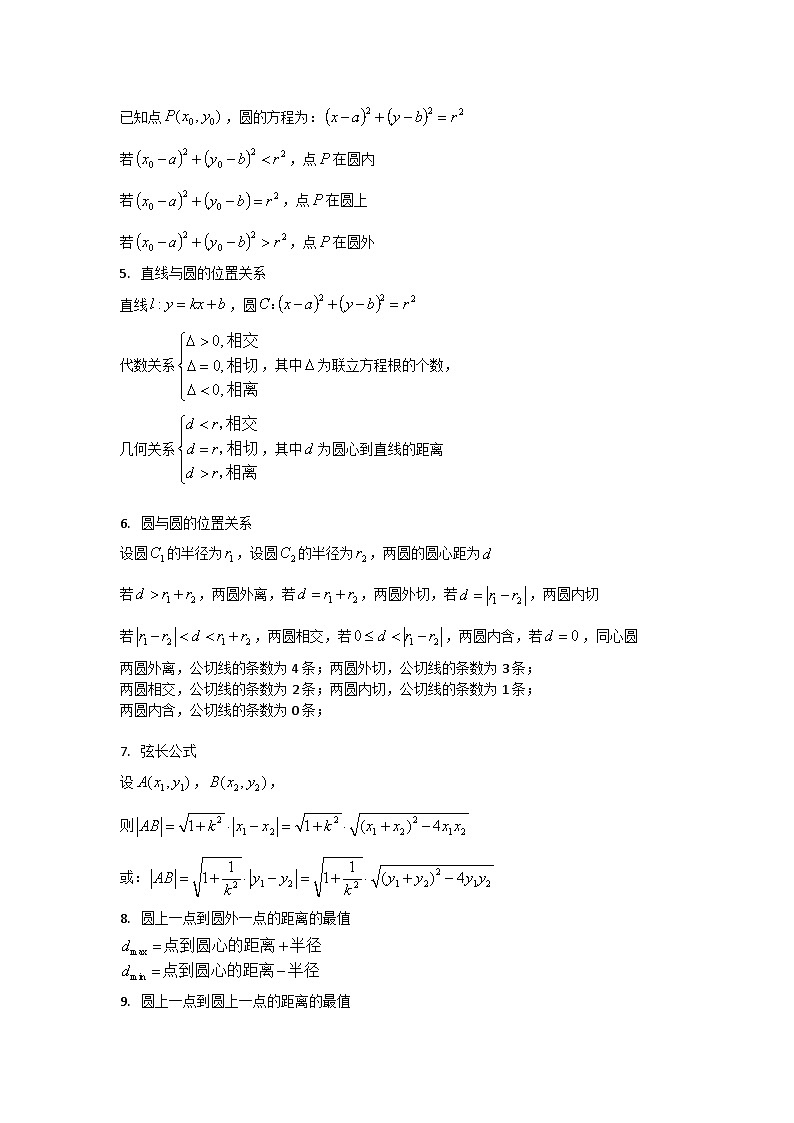 已知点 P(x₀, y₀)，圆的方程为：(x−a)²+(y−b)²=r²
若(x₀−a)²+(y₀−b)²<r²，点P在圆内
若(x₀−a)²+(y₀−b)=r²，点P在圆上
若(x₀−a)²+(y₀−b)²>r²，点P在圆外
5. 直线与圆的位置关系
直线l:y=kx+b，圆C:(x−a)²+(y−b)²=r²
代数关系{Δ>0,相交
Δ=0,相切，其中Δ为联立方程根的个数，
Δ<0,相离
几何关系{d<r，相交
d=r，相切，其中d为圆心到直线的距离
d>r，相离
6. 圆与圆的位置关系
设圆C₁的半径为r₁，设圆C₂的半径为r₂，两圆的圆心距为d
若d>r₁+r₂，两圆外离，若d=r₁+r₂，两圆外切，若d=|r₁−r₂|，两圆内切
若|r₁−r₂|<d<r₁+r₂，两圆相交，若0≤d<|r₁−r₂|，两圆内含，若d=0，同心圆
两圆外离，公切线的条数为4条；两圆外切，公切线的条数为3条；
两圆相交，公切线的条数为2条；两圆内切，公切线的条数为1条；
两圆内含，公切线的条数为0条；
7. 弦长公式
设A(x₁,y₁)，B(x₂,y₂)，
则|AB|=√(1+k²)·|x₁−x₂|=√(1+k²)·√((x₁+x₂)²−4x₁x₂)
或：|AB|=√(1+1/k²)·|y₁−y₂|=√(1+1/k²)·√((y₁+y₂)²−4y₁y₂)
8. 圆上一点到圆外一点的距离的最值
d_max=点到圆心的距离+半径
d_min=点到圆心的距离−半径
9. 圆上一点到圆上一点的距离的最值